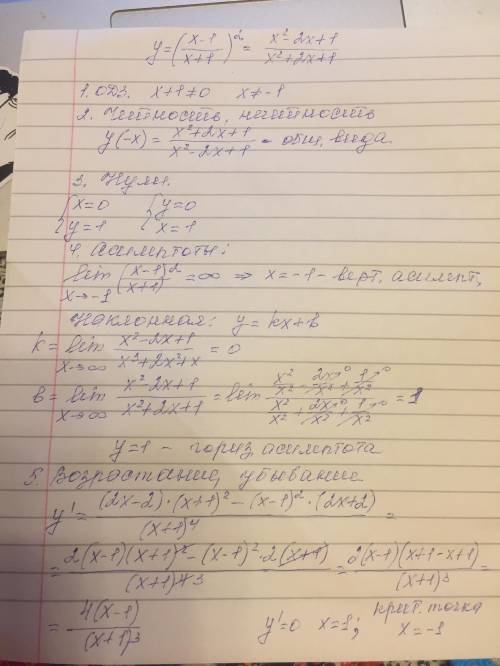 y=(x-1/x+1)² = x²-2x+1/x²+2x+1
1. ОДЗ. x+1≠0 x≠-1
2. Чётность, нечётность
y(-x) = x²+2x+1/x²-2x+1 - общ. вида
3. Нули.
{x=0 {y=0
{y=1 {x=1
4. Асимптоты:
lim x→-1 (x-1/x+1)² = ∞ ⇒ x=-1 - верт. асимпт,
Наклонная: y=kx+b
k = lim x→∞ x²-2x+1/x³+2x²+x = 0
b = lim x→∞ x²-2x+1/x²+2x+1 = lim (x²/x² - 2x/x²→0 + 1/x²→0)/(x²/x² + 2x/x²→0 + 1/x²→0) = 1
y=1 - гориз. асимптота
5. Возрастание, убывание
y' = (2x-2)·(x+1)² - (x-1)²·(2x+2)/(x+1)⁴ =
= 2(x-1)(x+1)² - (x-1)²·2(x+1)/(x+1)⁴ ³ = 2(x-1)(x+1-x+1)/(x+1)³ =
= 4(x-1)/(x+1)³ y'=0 x=1; крит. точка x=-1